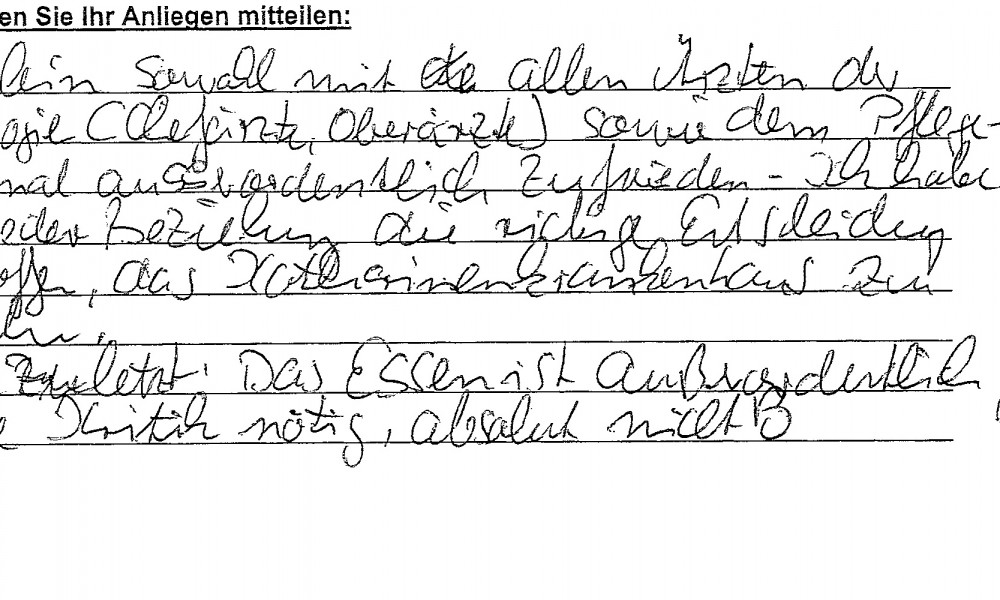 en Sie Ihr Anliegen mitteilen:
bin sowohl mit allen Ärzten der
ogie (Chefärzte, Oberärzte) sowie dem Pflege-
nal ausserordentlich zufrieden - Ich habe
jeder Beziehung die richtige Entscheidung
offen, das Katharinenkrankenhaus zu
en.
zuletzt: Das Essen ist außerordentlich
e Kritik nötig, absolut nicht